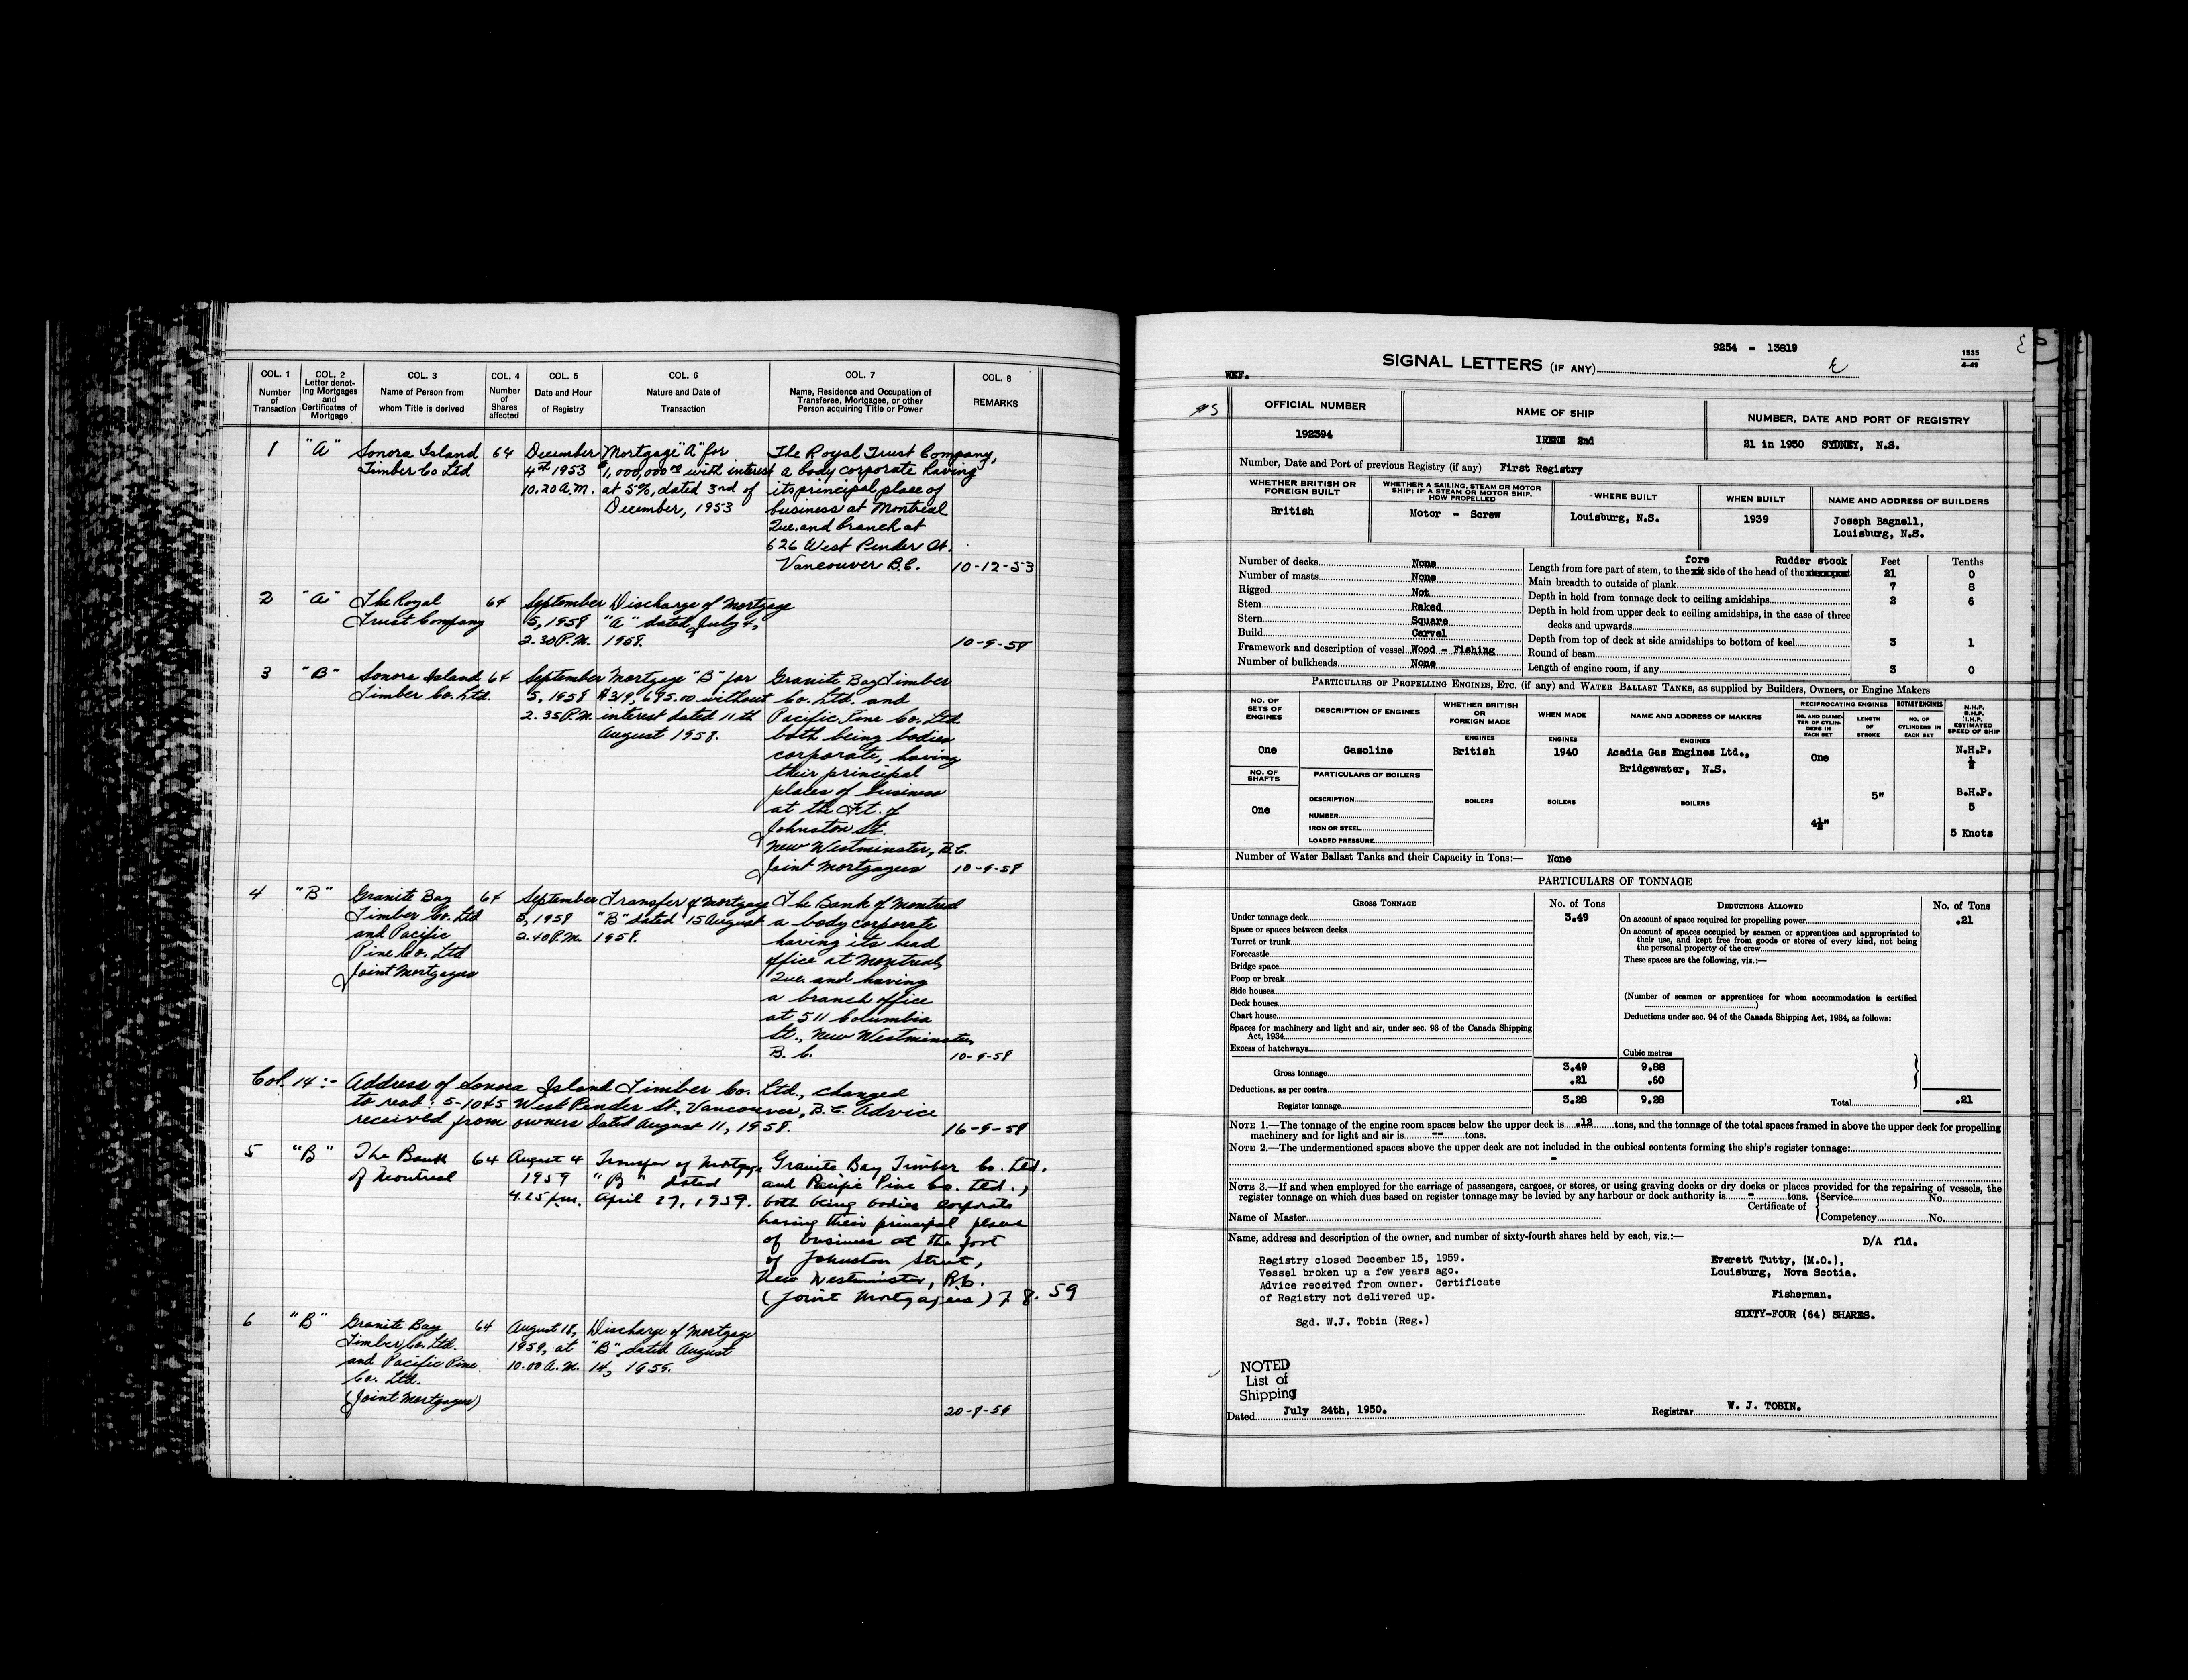 COL. 1 COL. 2 COL. 3 COL. 4 COL. 5 COL. 6 COL. 7 COL. 8
Number of Transaction
Letter denoting Mortgages and Certificates of Mortgage
Name of Person from whom Title is derived
Number of Shares affected
Date and Hour of Registry
Nature and Date of Transaction
Name, Residence and Occupation of Transferee, Mortgagee, or other Person acquiring Title or Power
REMARKS
1 "A" Sonora Island 64 December Mortgage "A" for The Royal Trust Company,
Timber Co Ltd 4th 1953 $1,000,000.00 with interest a body corporate having
10.20 A.M. at 5%, dated 3rd of its principal place of
December, 1953 business at Montreal
Que. and branch at
626 West Pender St.
Vancouver B.C. 10-12-53
2 "A" The Royal 64 September Discharge of Mortgage
Trust Company 5, 1958 "A" dated July 4,
2.30 P.M. 1958. 10-9-58
3 "B" Sonora Island 64 September Mortgage "B" for Granite Bay Timber
Timber Co. Ltd. 5, 1958 $319,695.00 without Co. Ltd. and
2.35 P.M. interest dated 11th Pacific Pine Co. Ltd.
August 1958. both being bodies
corporate, having
their principal
places of business
at the Ft. of
Johnston St.
New Westminster, B.C.
Joint Mortgagees 10-9-58
4 "B" Granite Bay 64 September Transfer of Mortgage The Bank of Montreal
Timber Co. Ltd 5, 1958 "B" dated 15 August a body corporate
and Pacific 2.40 P.M. 1958. having its head
Pine Co. Ltd office at Montreal,
Joint Mortgagees Que. and having
a branch office
at 511 Columbia
St., New Westminster,
B.C. 10-9-58
Col. 14:- Address of Sonora Island Timber Co. Ltd., changed
to read: 5-1045 West Pender St., Vancouver, B.C. Advice
received from owners dated August 11, 1958. 16-9-58
5 "B" The Bank 64 August 4 Transfer of Mortgage Granite Bay Timber Co. Ltd.
of Montreal 1959 "B" dated and Pacific Pine Co. Ltd.,
4.25 p.m. April 27, 1959. both being bodies corporate
having their principal places
of business at the foot
of Johnston Street,
New Westminster, B.C.
(Joint Mortgagees) 7. 8. 59
6 "B" Granite Bay 64 August 18, Discharge of Mortgage
Timber Co. Ltd. 1959, at "B" dated August
and Pacific Pine 10.00 A.M. 14, 1959.
Co. Ltd.
(Joint Mortgagees)
20-8-59
9254 - 13819
1535
4-49
SIGNAL LETTERS (IF ANY)
WEF.
OFFICIAL NUMBER NAME OF SHIP NUMBER, DATE AND PORT OF REGISTRY
192394 IRENE 2nd 21 in 1950 SYDNEY, N.S.
Number, Date and Port of previous Registry (if any) First Registry
WHETHER BRITISH OR FOREIGN BUILT
WHETHER A SAILING, STEAM OR MOTOR SHIP; IF A STEAM OR MOTOR SHIP, HOW PROPELLED
WHERE BUILT WHEN BUILT NAME AND ADDRESS OF BUILDERS
British Motor - Screw Louisburg, N.S. 1939 Joseph Bagnell,
Louisburg, N.S.
Number of decks None
Number of masts None
Rigged Not
Stem Raked
Stern Square
Build Carvel
Framework and description of vessel Wood - Fishing
Number of bulkheads None
Feet Tenths
fore Rudder stock
Length from fore part of stem, to the side of the head of the 21 0
Main breadth to outside of plank 7 8
Depth in hold from tonnage deck to ceiling amidships 2 6
Depth in hold from upper deck to ceiling amidships, in the case of three
decks and upwards
Depth from top of deck at side amidships to bottom of keel 3 1
Round of beam
Length of engine room, if any 3 0
PARTICULARS OF PROPELLING ENGINES, ETC. (if any) and WATER BALLAST TANKS, as supplied by Builders, Owners, or Engine Makers
NO. OF SETS OF ENGINES
DESCRIPTION OF ENGINES
WHETHER BRITISH OR FOREIGN MADE
WHEN MADE
NAME AND ADDRESS OF MAKERS
RECIPROCATING ENGINES ROTARY ENGINES
NO. AND DIAMETER OF CYLINDERS IN EACH SET
LENGTH OF STROKE
NO. OF CYLINDERS IN EACH SET
N.H.P.
B.H.P.
I.H.P.
ESTIMATED SPEED OF SHIP
ENGINES ENGINES ENGINES
One Gasoline British 1940 Acadia Gas Engines Ltd., One N.H.P.
Bridgewater, N.S. ½
NO. OF SHAFTS PARTICULARS OF BOILERS
One
DESCRIPTION BOILERS BOILERS BOILERS 5" B.H.P.
NUMBER 5
IRON OR STEEL 4½" 5 Knots
LOADED PRESSURE
Number of Water Ballast Tanks and their Capacity in Tons:— None
PARTICULARS OF TONNAGE
GROSS TONNAGE No. of Tons DEDUCTIONS ALLOWED No. of Tons
Under tonnage deck 3.49
Space or spaces between decks
Turret or trunk
Forecastle
Bridge space
Poop or break
Side houses
Deck houses
Chart house
Spaces for machinery and light and air, under sec. 93 of the Canada Shipping
Act, 1934
Excess of hatchways
Cubic metres
Gross tonnage 3.49 9.88
Deductions, as per contra .21 .60
Register tonnage 3.28 9.28
On account of space required for propelling power .21
On account of spaces occupied by seamen or apprentices and appropriated to
their use, and kept free from goods or stores of every kind, not being
the personal property of the crew
These spaces are the following, viz.:—
(Number of seamen or apprentices for whom accommodation is certified
)
Deductions under sec. 94 of the Canada Shipping Act, 1934, as follows:
Total .21
NOTE 1.—The tonnage of the engine room spaces below the upper deck is .12 tons, and the tonnage of the total spaces framed in above the upper deck for propelling
machinery and for light and air is -- tons.
NOTE 2.—The undermentioned spaces above the upper deck are not included in the cubical contents forming the ship's register tonnage:
-
NOTE 3.—If and when employed for the carriage of passengers, cargoes, or stores, or using graving docks or dry docks or places provided for the repairing of vessels, the
register tonnage on which dues based on register tonnage may be levied by any harbour or dock authority is - tons.
Certificate of
Service No.
Competency No.
Name of Master
Name, address and description of the owner, and number of sixty-fourth shares held by each, viz.:—
D/A fld.
Registry closed December 15, 1959.
Vessel broken up a few years ago.
Advice received from owner. Certificate
of Registry not delivered up.
Sgd. W.J. Tobin (Reg.)
Everett Tutty, (M.O.),
Louisburg, Nova Scotia.
Fisherman.
SIXTY-FOUR (64) SHARES.
NOTED
List of
Shipping
Dated July 24th, 1950.
Registrar W. J. TOBIN.